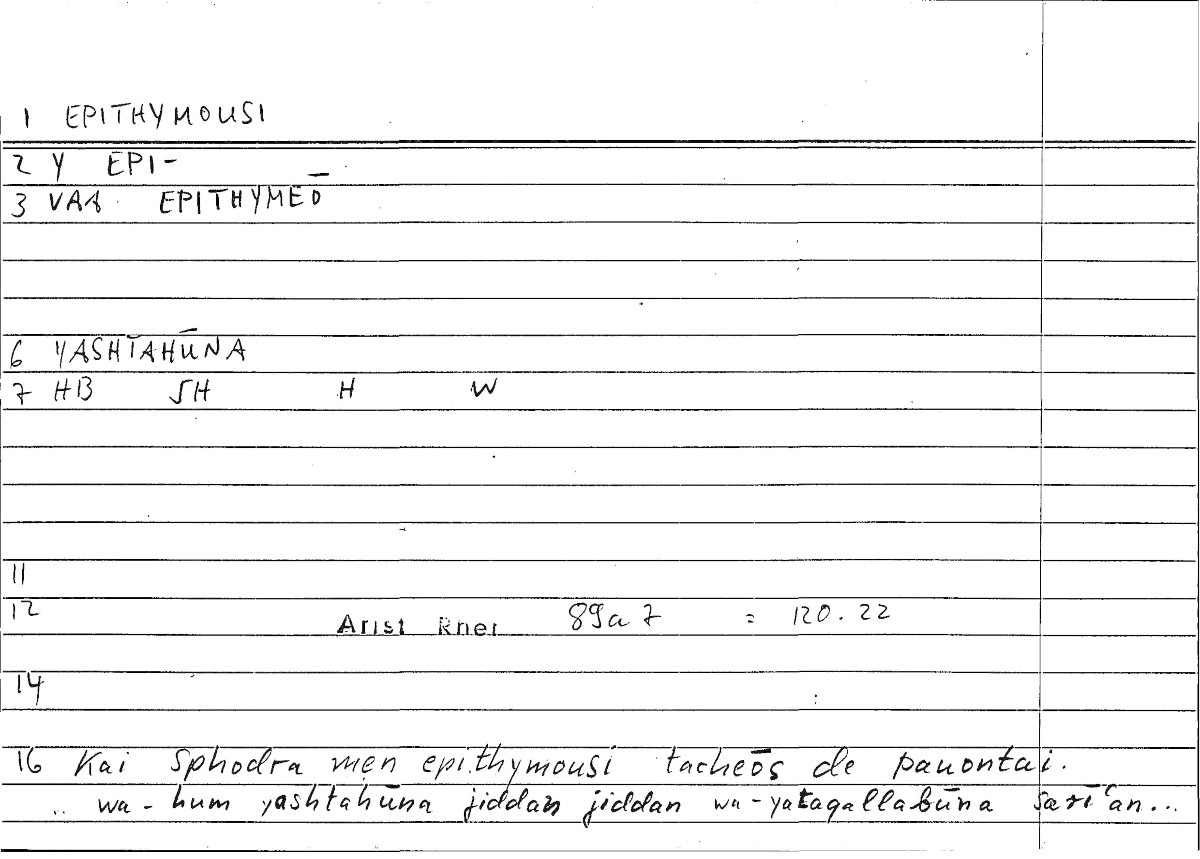 1 EPITHYMOUSI
2 Y EPI-
3 VAA EPITHYMEŌ
6 YASHTAHŪNA
7 HB SH H W
11
12 Arist Rhet 89a7 = 120.22
14
16 Kai Sphodra men epithymousi tacheōs de pauontai.
.. wa-hum yashtahūna jiddan jiddan wa-yataqallabūna sarī‘an...